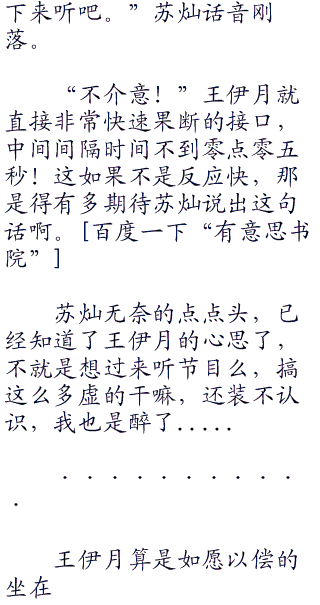 下来听吧。”苏灿话音刚
落。
“不介意！”王伊月就
直接非常快速果断的接口，
中间间隔时间不到零点零五
秒！这如果不是反应快，那
是得有多期待苏灿说出这句
话啊。[百度一下“有意思书
院”]
苏灿无奈的点点头，已
经知道了王伊月的心思了，
不就是想过来听节目么，搞
这么多虚的干嘛，还装不认
识，我也是醉了.....
．．．．．．．．．．
．
王伊月算是如愿以偿的
坐在